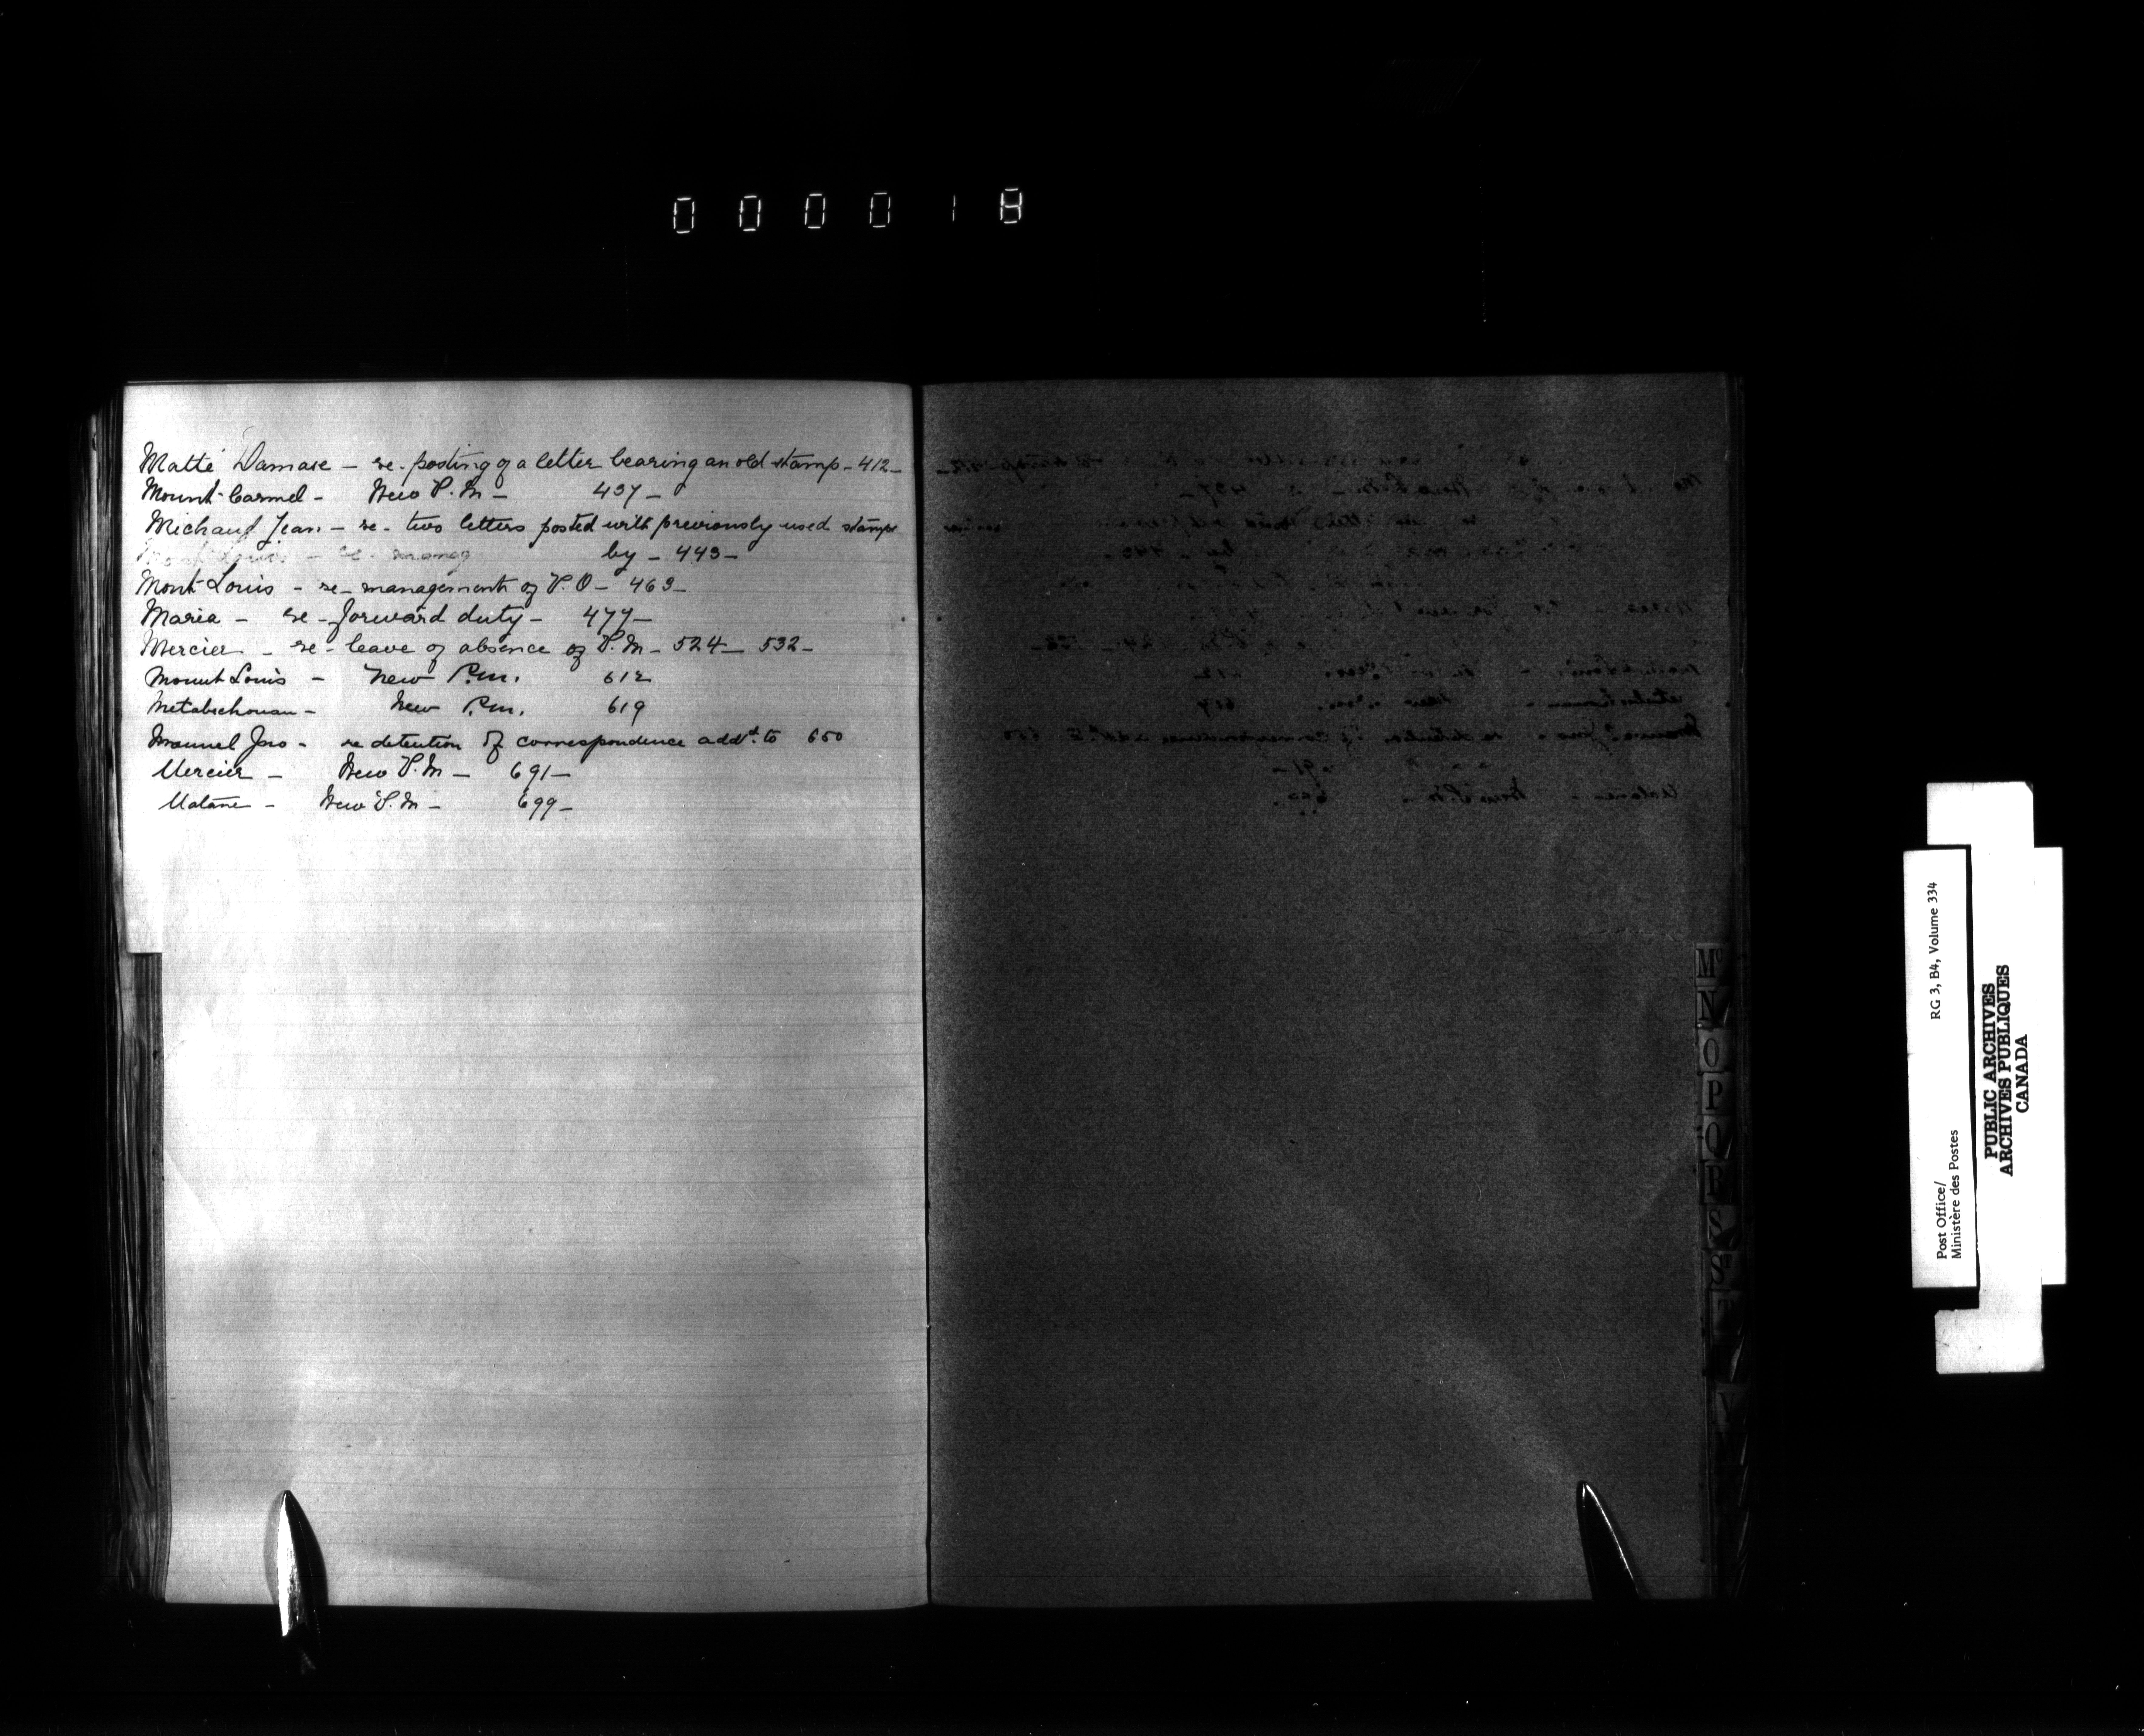 000018
Matté Damase - re - posting of a letter bearing an old stamp - 412 -
Mount-Carmel - New P.M - 437 -
Michaud Jean - re - two letters posted with previously used stamps
Mont Louis - re - manag by - 443 -
Mont-Louis - re - management of P.O - 463 -
Maria - re - forward duty - 477 -
Mercier - re - leave of absence of P.M - 524 - 532 -
Mount Louis - New P.M. 612
Metabechouan - New P.M. 619
Manuel Jno - re detention of correspondence addd. to 650
Mercier - New P.M - 691 -
Matane - New P.M - 699 -
Mc
N
O
P
Q
R
S
St
T
Y
Post Office/
Ministère des Postes
RG 3, B4, Volume 334
PUBLIC ARCHIVES
ARCHIVES PUBLIQUES
CANADA